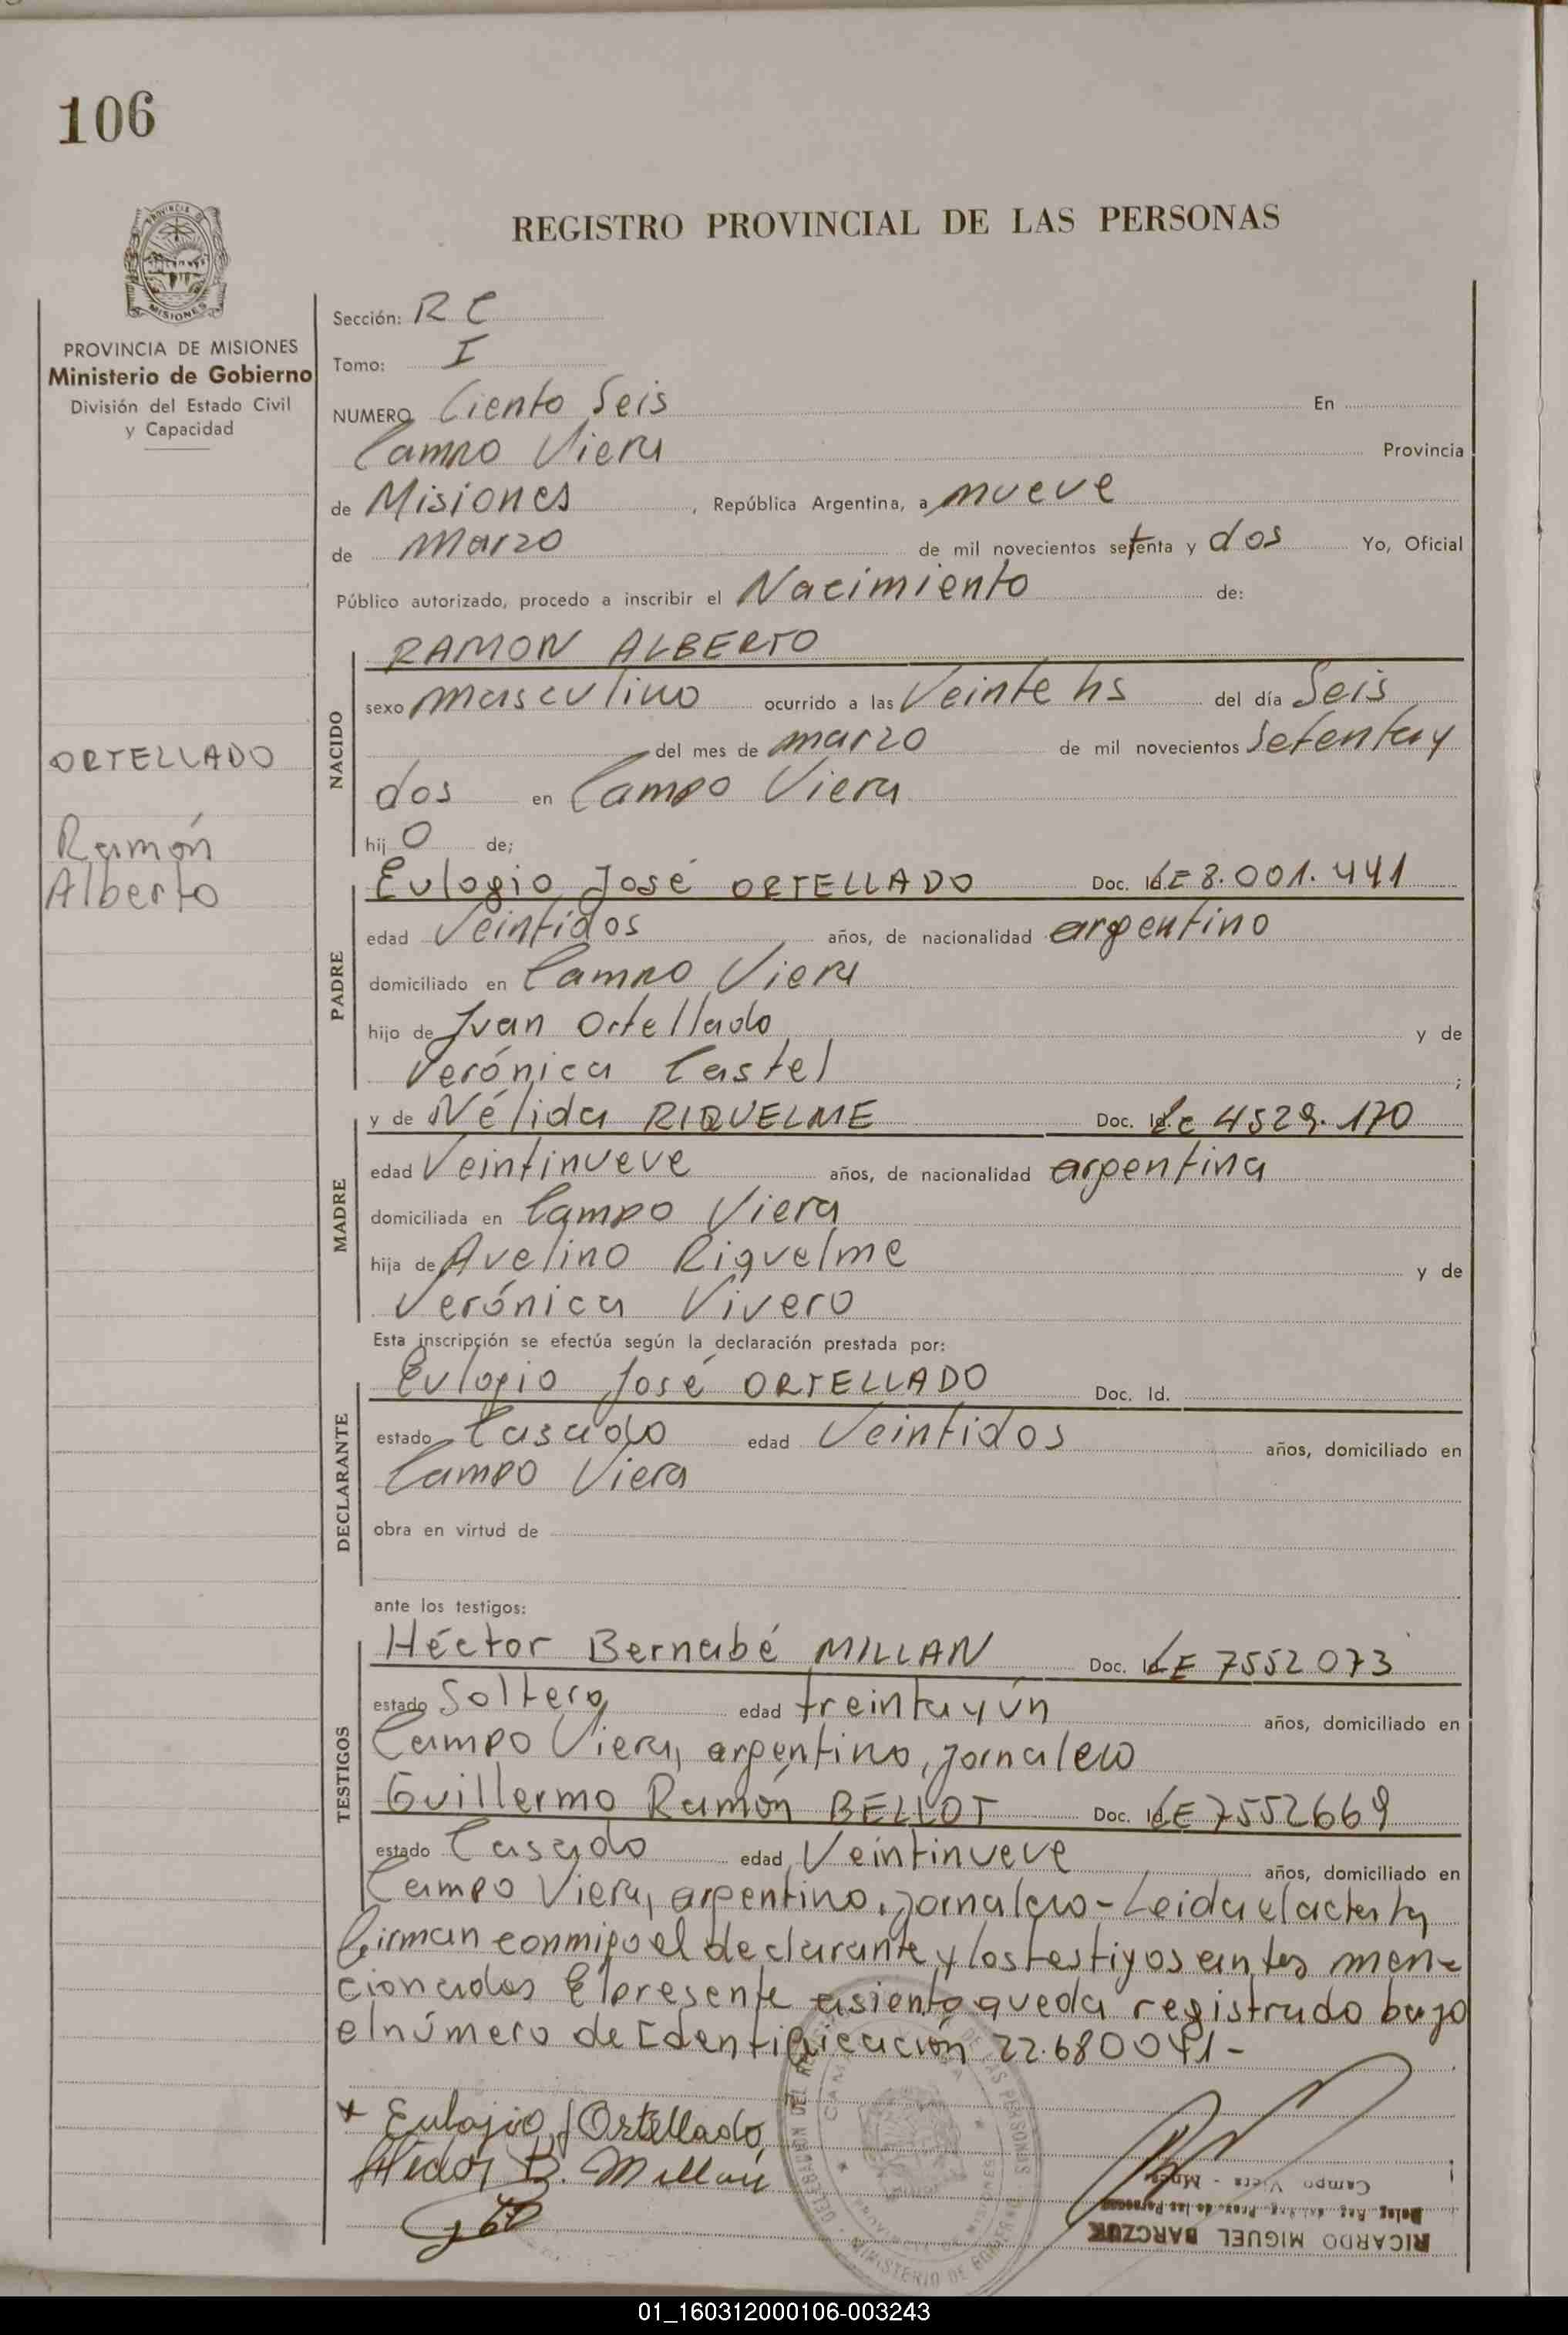 106
REGISTRO PROVINCIAL DE LAS PERSONAS
MISIONES
PROVINCIA DE MISIONES
Ministerio de Gobierno
División del Estado Civil
y Capacidad
ORTELLADO
Ramón
Alberto
Sección: R C
Tomo: I
NUMERO Ciento Seis En
Campo Viera Provincia
de Misiones, República Argentina, a nueve
de Marzo de mil novecientos setenta y dos Yo, Oficial
Público autorizado, procedo a inscribir el Nacimiento de:
NACIDO
RAMON ALBERTO
sexo masculino ocurrido a las Veinte hs del día Seis
del mes de marzo de mil novecientos Setenta y
dos en Campo Viera
hij o de;
PADRE
Eulogio José ORTELLADO Doc. Id. LE 8.001.441
edad Veintidos años, de nacionalidad argentino
domiciliado en Campo Viera
hijo de Juan Ortellado y de
Verónica Castel ;
MADRE
y de Nélida RIQUELME Doc. Id. LC 4529.170
edad Veintinueve años, de nacionalidad argentina
domiciliada en Campo Viera
hija de Avelino Riquelme y de
Verónica Vivero
Esta inscripción se efectúa según la declaración prestada por:
DECLARANTE
Eulogio José ORTELLADO Doc. Id.
estado Casado edad Veintidos años, domiciliado en
Campo Viera
obra en virtud de
ante los testigos:
TESTIGOS
Héctor Bernabé MILLAN Doc. Id. LE 7552073
estado Soltero edad treinta y ún años, domiciliado en
Campo Viera, argentino, jornalero
Guillermo Ramón BELLOT Doc. Id. LE 7552669
estado Casado edad Veintinueve años, domiciliado en
Campo Viera, argentino, jornalero - Leida el acta la
firman conmigo el declarante y los testigos antes men-
cionados El presente asiento queda registrado bajo
el número de Identificación 22.680041-
x Eulojio J Ortellado
Hector B. Millan
Campo Viera - Mnes
RICARDO MIGUEL BARCZUK
MINISTERIO DE GOBIERNO
PROVINCIA DE MISIONES
01_160312000106-003243